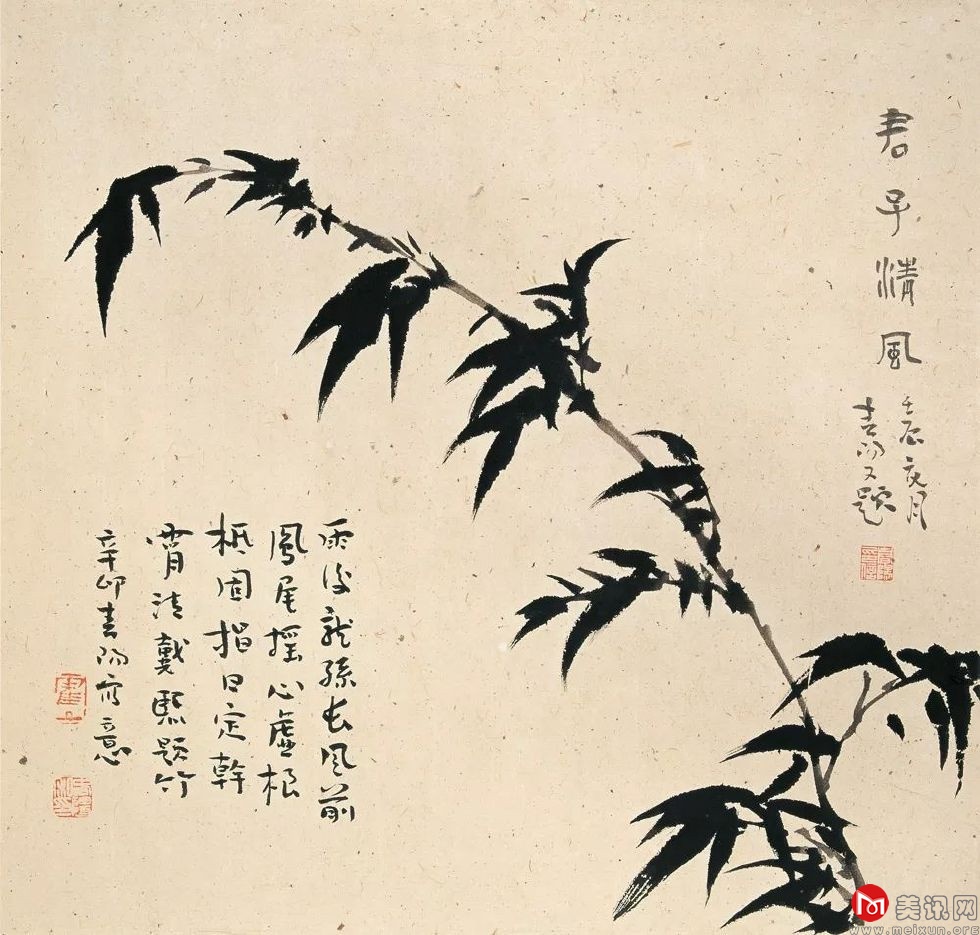 君子清風
壬辰月
春陽又題
雨後龍孫長風前
鳳尾搖心虛根
柢固指日定幹
霄清戴熙題竹
辛卯春陽寫意
美讯网
www.meixun.org